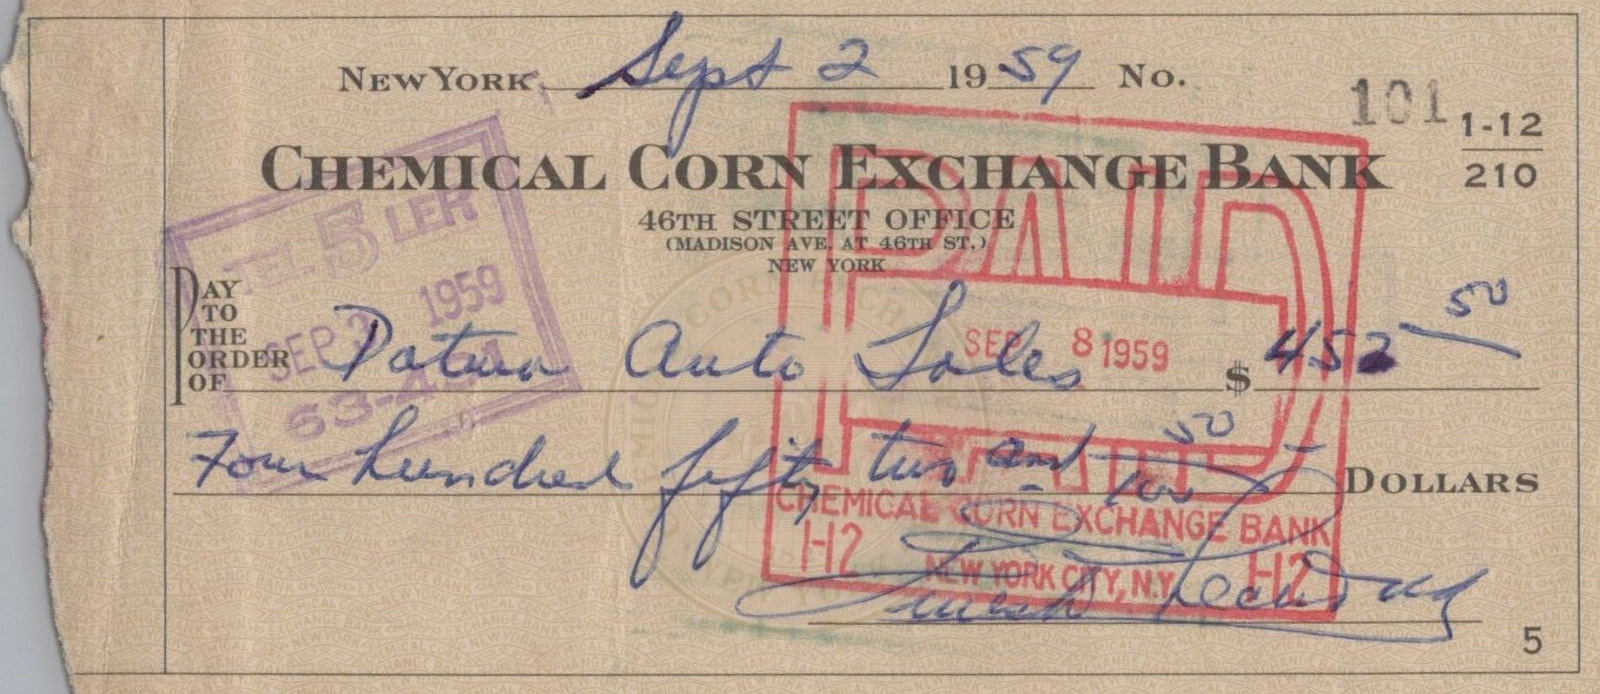 New York Sept 2 1959 No. 101
1-12
210
CHEMICAL CORN EXCHANGE BANK
46TH STREET OFFICE
(MADISON AVE. AT 46TH ST.)
NEW YORK
TELLER
5
SEP 3 1959
63-
PAID
SEP 8 1959
PAY TO THE ORDER OF Auto Sales $ 452 50
Four hundred fifty two and 50/100 DOLLARS
CHEMICAL CORN EXCHANGE BANK
H2 NEW YORK CITY, N.Y. H2
5